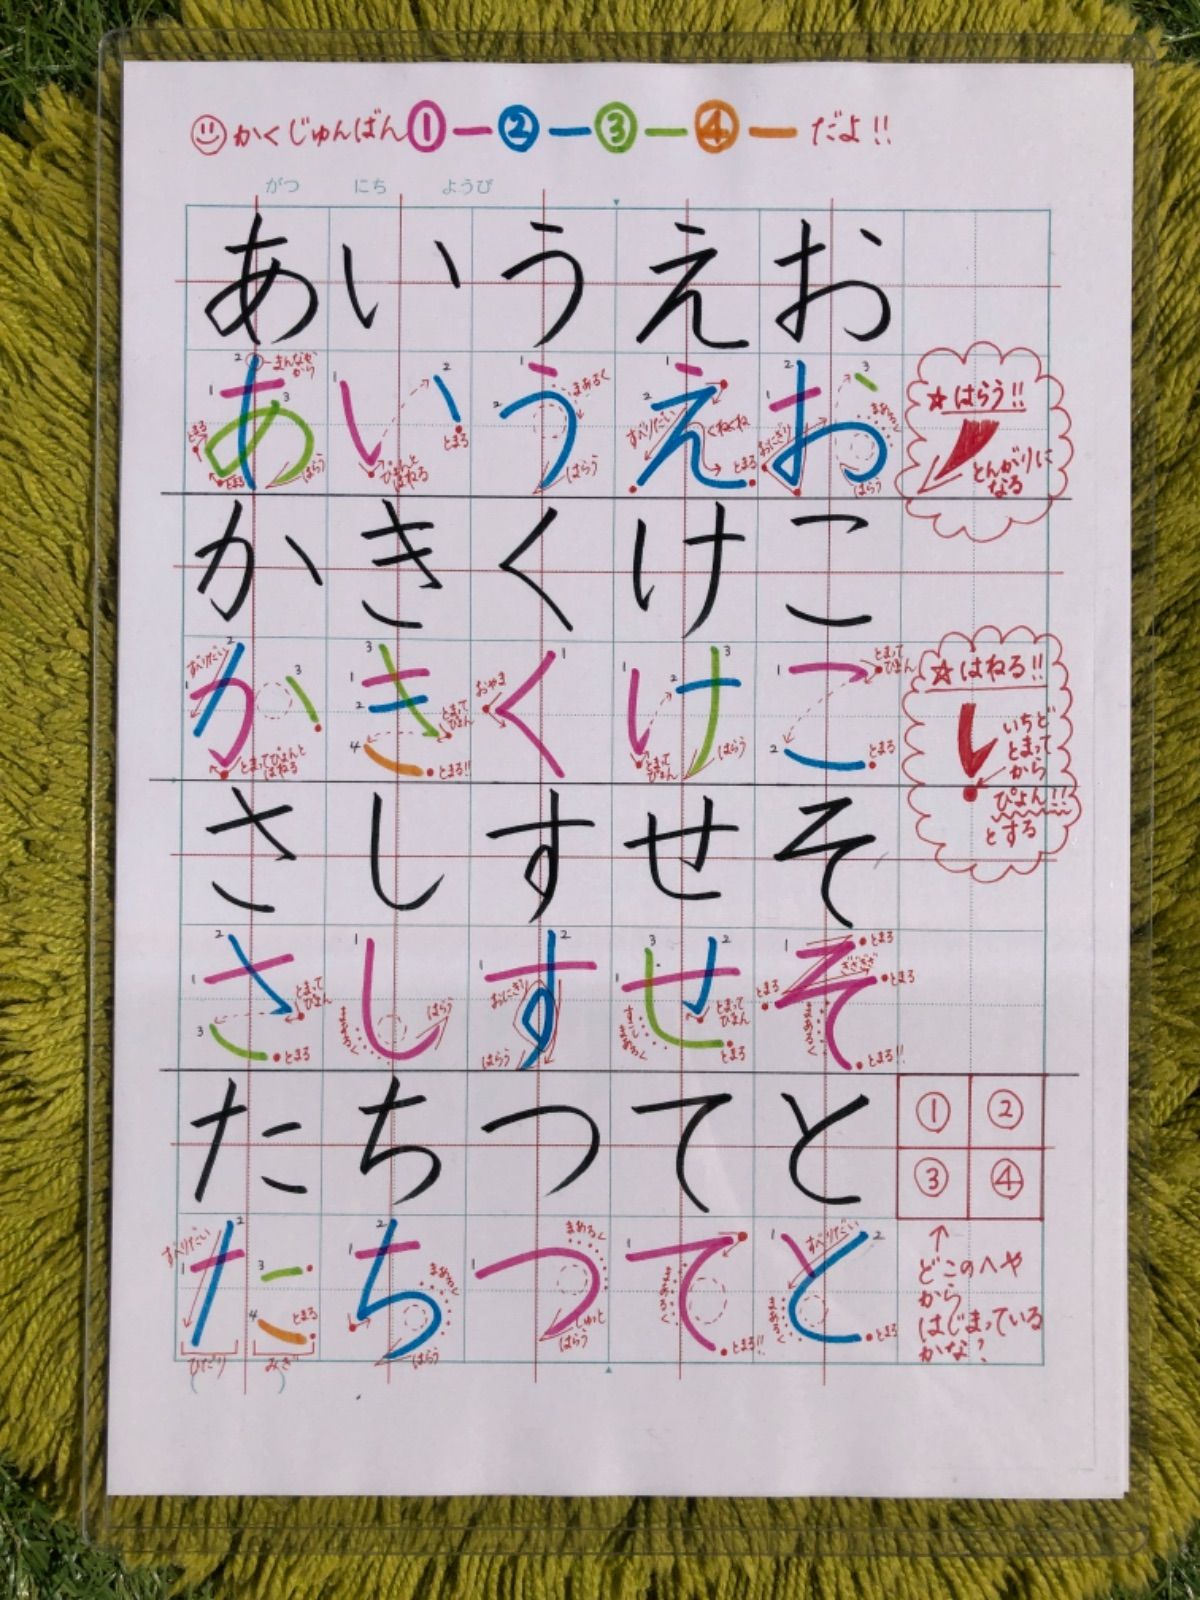 かくじゅんばん ① ー ② ー ③ ー ④ ー だよ!!
がつ にち ようび
あ い う え お
2 まんなかから 1 3 とまる とまる はらう
1 2 とまる ぴょんと はねる
1 2 まあるく はらう
1 2 すべりだい くねくね とまる
1 2 3 おにぎり まあるく はらう
あ い う え お
☆はらう!!
とんがりに
なる
か き く け こ
すべりだい 1 2 3 とまってぴょんと はねる
1 2 3 4 とまって ぴょん とまる!!
1 おやま
1 2 3 とまって ぴょん はらう
1 2 とまって ぴょん とまる
か き く け こ
☆はねる!!
いちど
とまって
から
ぴょん!!
とする
さ し す せ そ
1 2 3 とまって ぴょん とまる
1 まあるく はらう
1 2 おにぎり はらう
1 2 3 すこし まあるく とまって ぴょん とまる
1 とまる ぎざぎざ とまる とまる まあるく とまる!!
さ し す せ そ
た ち つ て と
① ②
③ ④
すべりだい 1 2 3 4 とまる ひだり みぎ
1 2 まあるく はらう
1 まあるく しゅっと はらう
1 まあるく とまる!!
1 2 すべりだい まあるく とまる
た ち つ て と
どこのへや
から
はじまっている
かな?